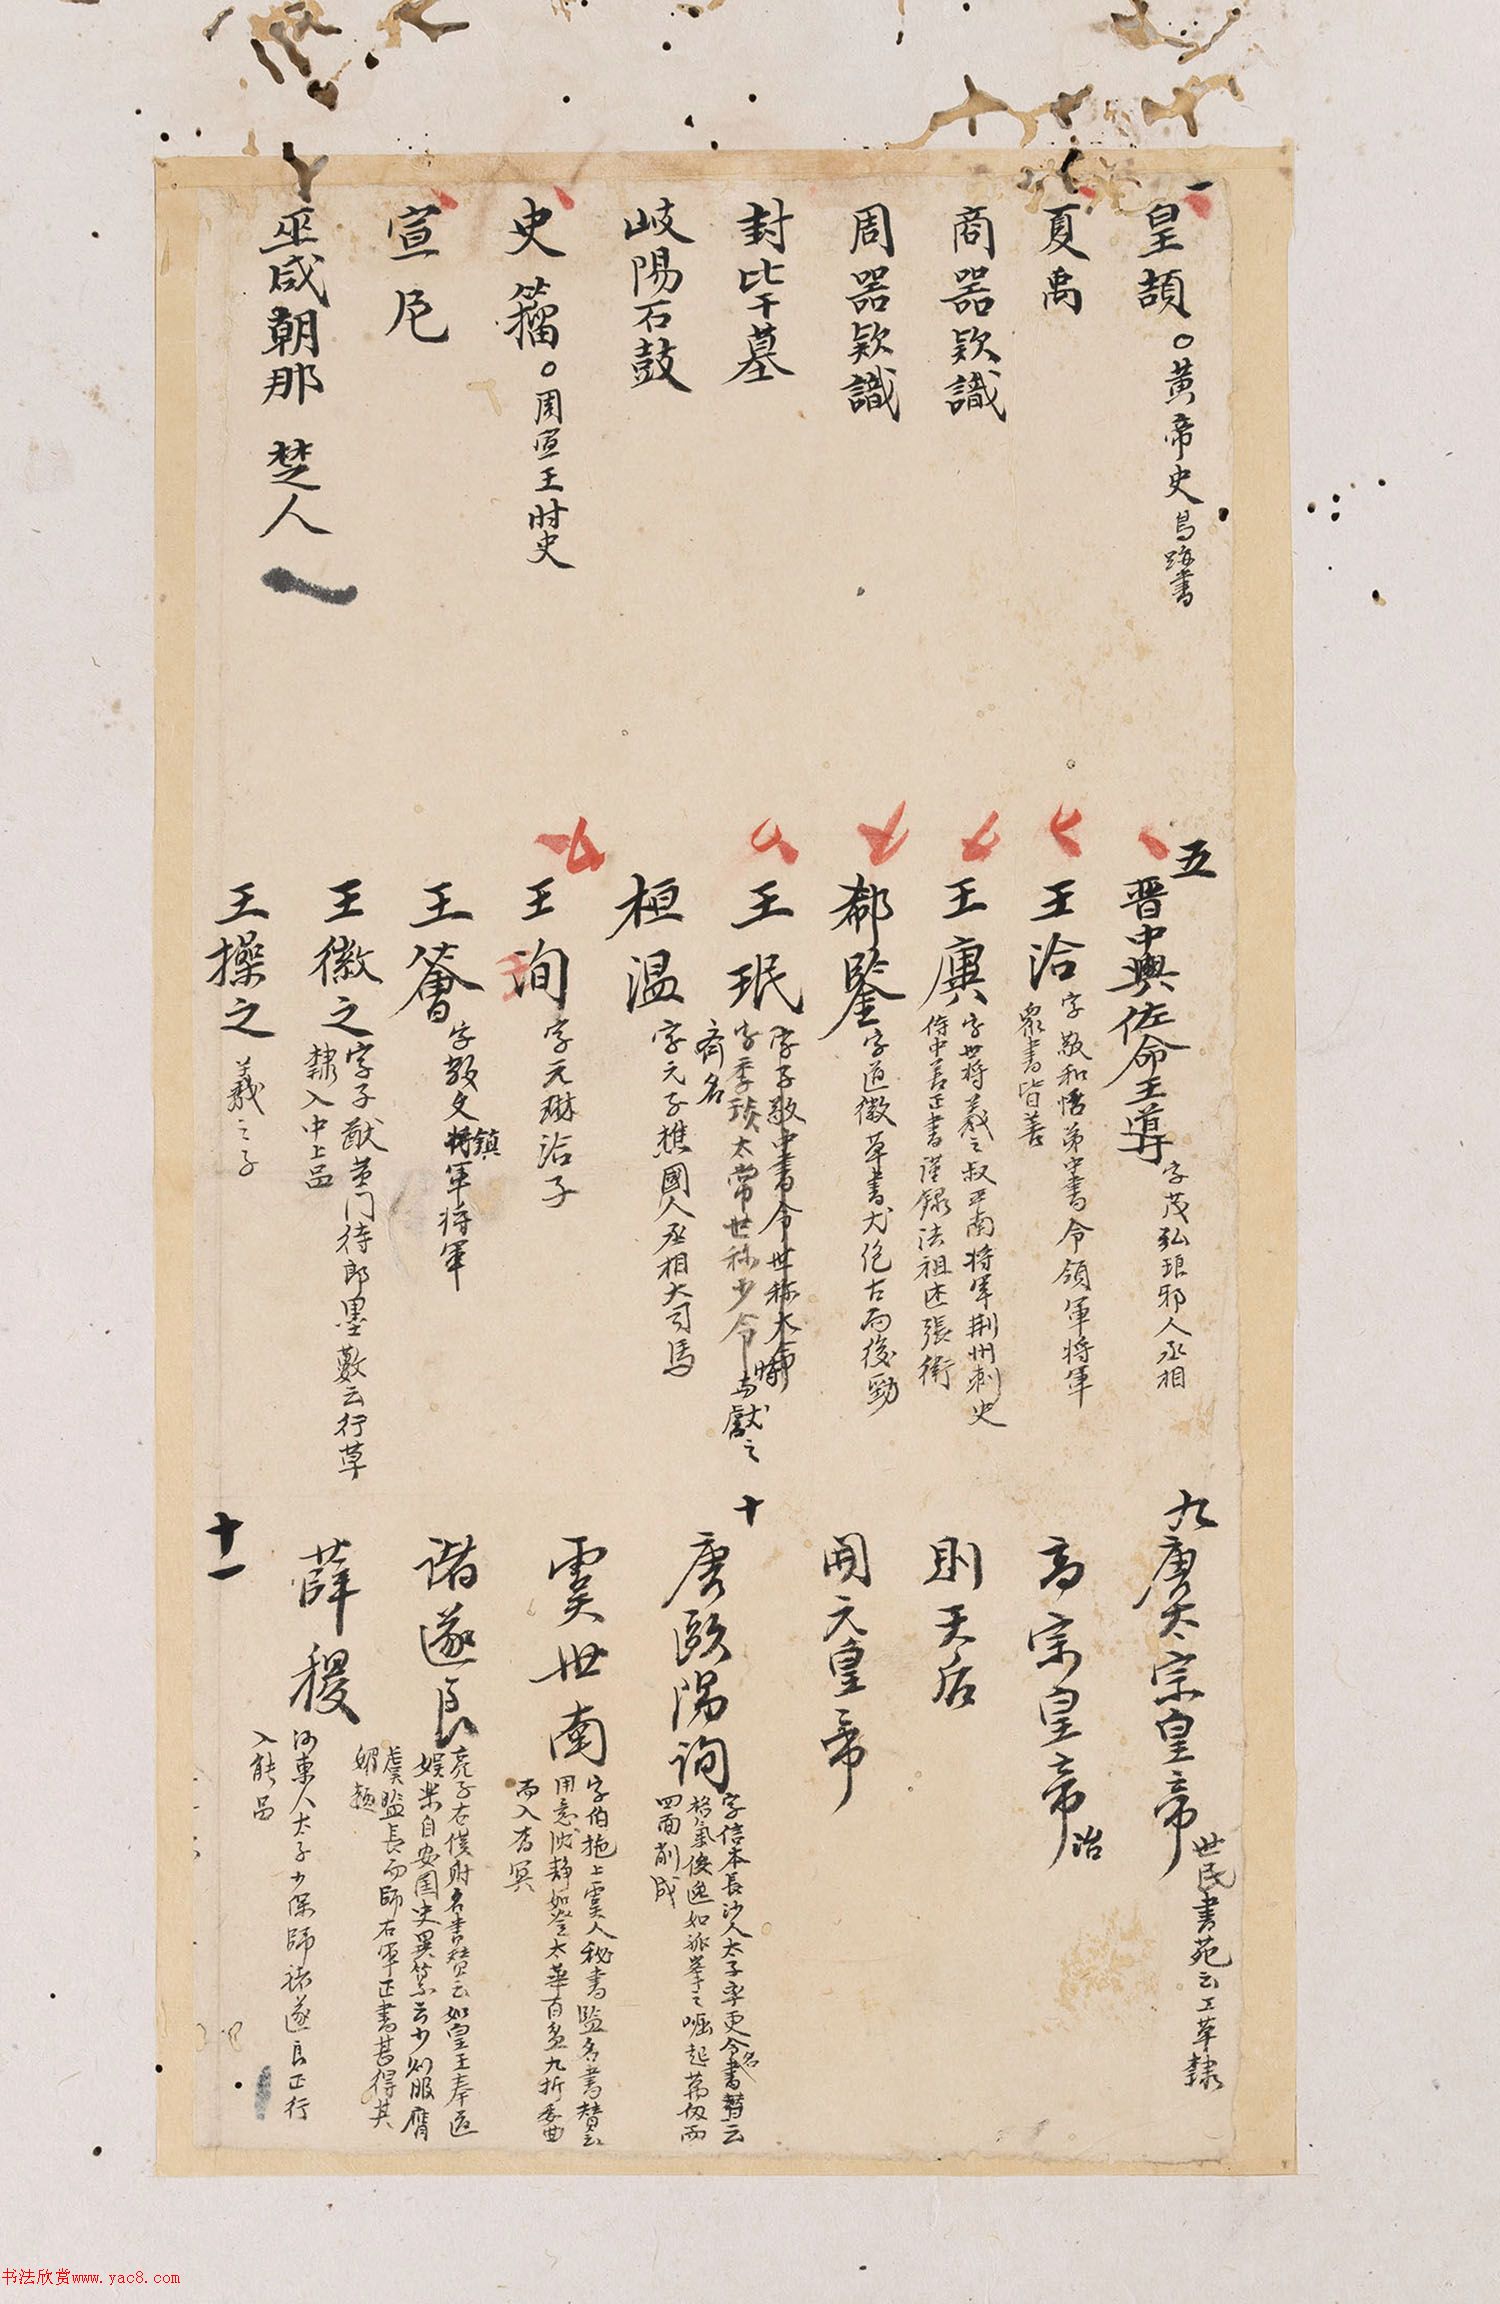 一
皇頡。黃帝史鳥跡書
夏禹
商器款識
周器款識
封比干墓
岐陽石鼓
史籀。周宣王時史
宣尼
巫咸朝那 楚人
五
晉中興佐命王導 字茂弘琅邪人丞相
王洽 字敬和悟弟中書令領軍將軍
眾書皆善
王廙 字世將羲之叔平南將軍荊州刺史
侍中善正書謹錄法祖述張衛
郗鑒 字道徽草書尤絕古而後勁
王珉 字子敬中書令世稱大令
字季琰太常世称少令 時與獻之
齊名
桓溫 字元子樵國人丞相大司馬
王洵 字元琳洽子
王薈 字敬文鎮軍將軍
王徽之 字子猷黃門待郎墨藪云行草
隸入中上品
王操之 羲之子
九
唐太宗皇帝 世民書苑云工草隸
高宗皇帝 治
則天后
開元皇帝
十
唐歐陽詢 字信本長沙人太子率更令名書賛云
格氣俊逸如孤峯之崛起萬仞而
四面削成
虞世南 字伯施上虞人秘書監名書賛云
用意沈靜如登太華百盤九折委曲
而入杳冥
褚遂良 亮子右僕射名書賛云如皇王奉返
娛樂自安國史異篡云少則服膺
虞監長而師右軍正書甚得其
媚趣
十一
薛稷 河東人太子少保師褚遂良正行
入能品
书法欣赏www.yac8.com